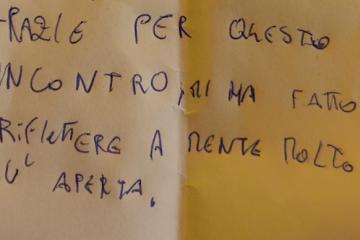 GRAZIE PER QUESTO
INCONTRO, MI HA FATTO
RIFLETTERE A MENTE MOLTO
PIU' APERTA.